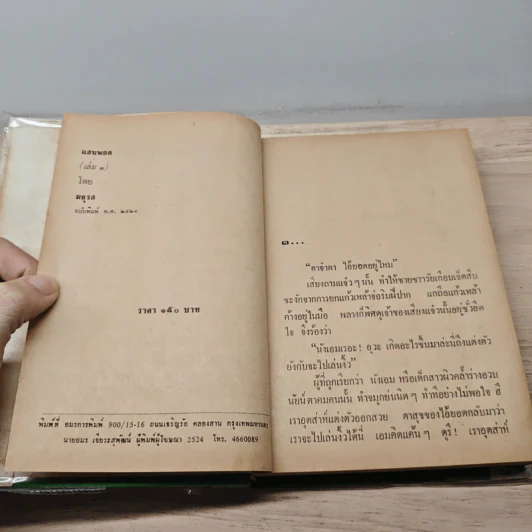 แสนพลอ
(เล่ม ๑)
โดย
มธุรส
ฉบับพิมพ์ พ.ศ. ๒๕๒๔
ราคา ๑๕๐ บาท
พิมพ์ที่ อมรการพิมพ์ 900/15-16 ถนนเจริญรัถ คลองสาน กรุงเทพมหานคร
นายอมร เจยาะสุพัฒน์ ผู้พิมพ์ผู้โฆษณา 2524 โทร. 4660089
๑...
"ตาจำตา ไอ้ยอดอยู่ไหม"
เสียงถามแจ้ว ๆ นั้น ทำให้ชายชราวัยเกือบเจ็ดสิบ
ชะงักจากการยกแก้วเหล้าจ่อริมฝีปาก แกถือแก้วเหล้า
ค้างอยู่ในมือ พลางก็พิศดูเจ้าของเสียงแจ้วนั้นอยู่ชั่วอึด
ใจ จึงร้องว่า
"นังเอมเรอะ! อุวะ เกิดอะไรขึ้นมาล่ะนี่ถึงแต่งตัว
ยังกับจะไปเล่นงิ้ว"
ผู้ที่ถูกเรียกว่า นังเอม หรือเด็กสาวผิวคล้ำร่างอวบ
นัยน์ตาคมคนนั้น ทำจมูกย่นนิด ๆ ทำทีอย่างไม่พอใจ ฮึ
เราอุตส่าห์แต่งตัวออกสวย ตาสุขของไอ้ยอดกลับมาว่า
เราจะไปเล่นงิ้วได้นี่ เอมคิดแค้น ๆ ดุรึ! เราอุตส่าห์